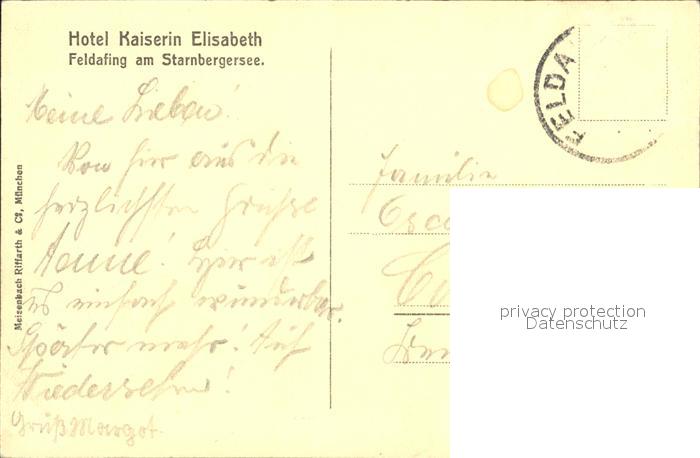 Hotel Kaiserin Elisabeth
Feldafing am Starnbergersee.
FELDA
Meine Lieben!
Von hier aus die
herzlichsten Grüsse
Hier ist
es einfach wunderbar.
Später mehr! Auf
Wiedersehen!
Gruß Margot.
Meisenbach Riffarth & Co., München
Familie
privacy protection
Datenschutz